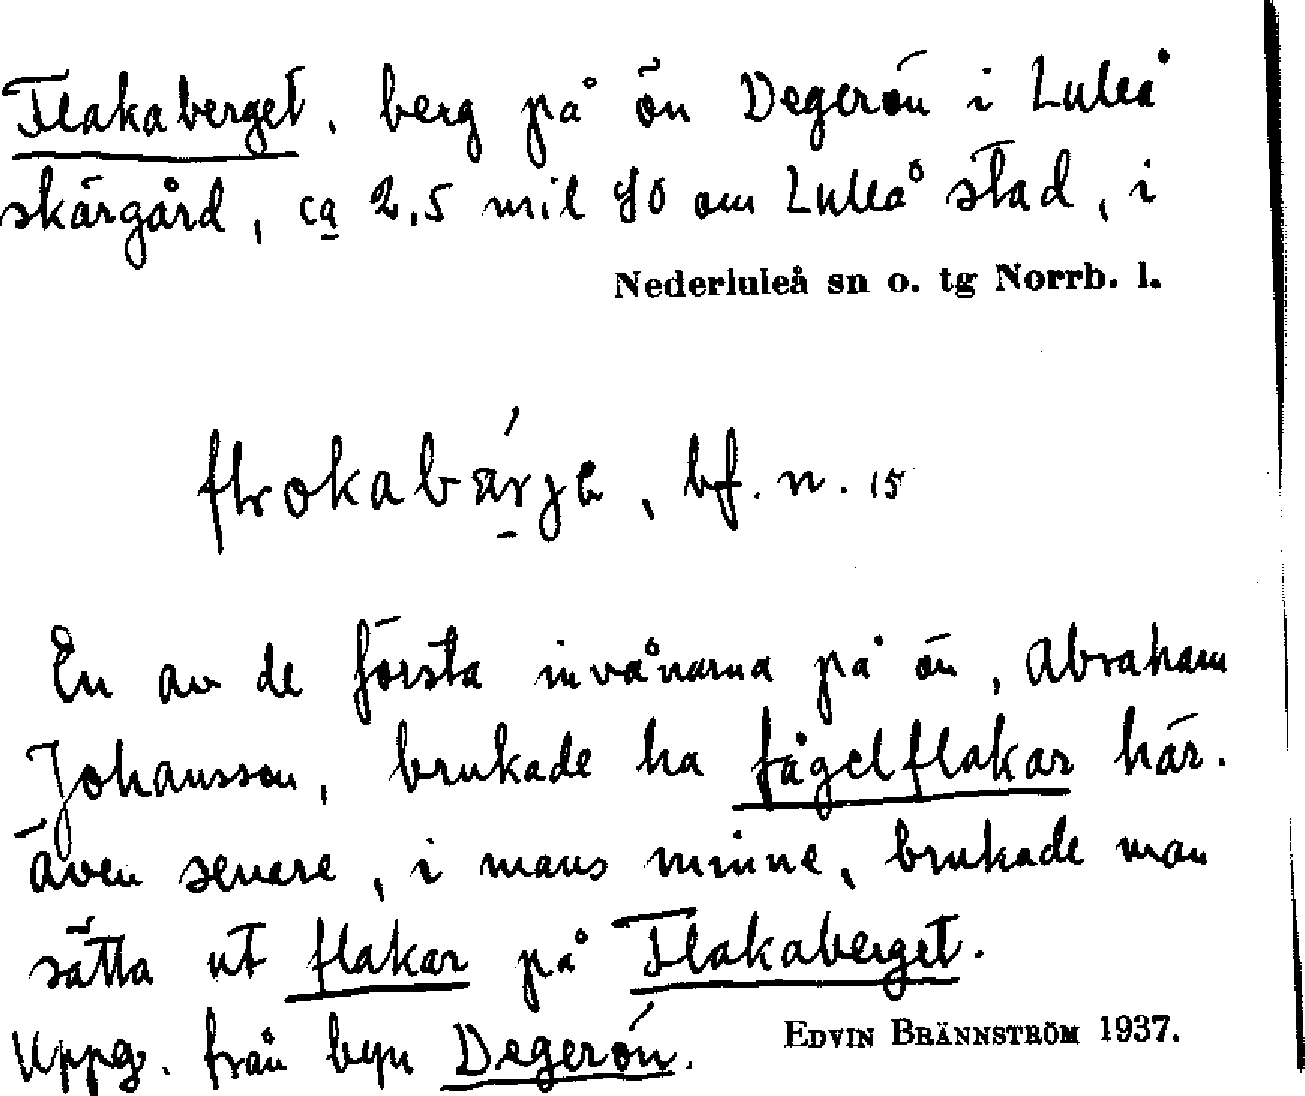 Flakaberget, berg på ön Degerön i Luleå
skärgård, ca 2,5 mil SO om Luleå stad, i
Nederluleå sn o. tg Norrb. l.
bf. n. 15
En av de första invånarna på ön, Abraham
Johansson, brukade ha fågelflakar här.
Även senere, i mans minne, brukade man
sätta ut flakar på Flakaberget.
Uppg. från byn Degerön.
EDVIN BRÄNNSTRÖM 1937.